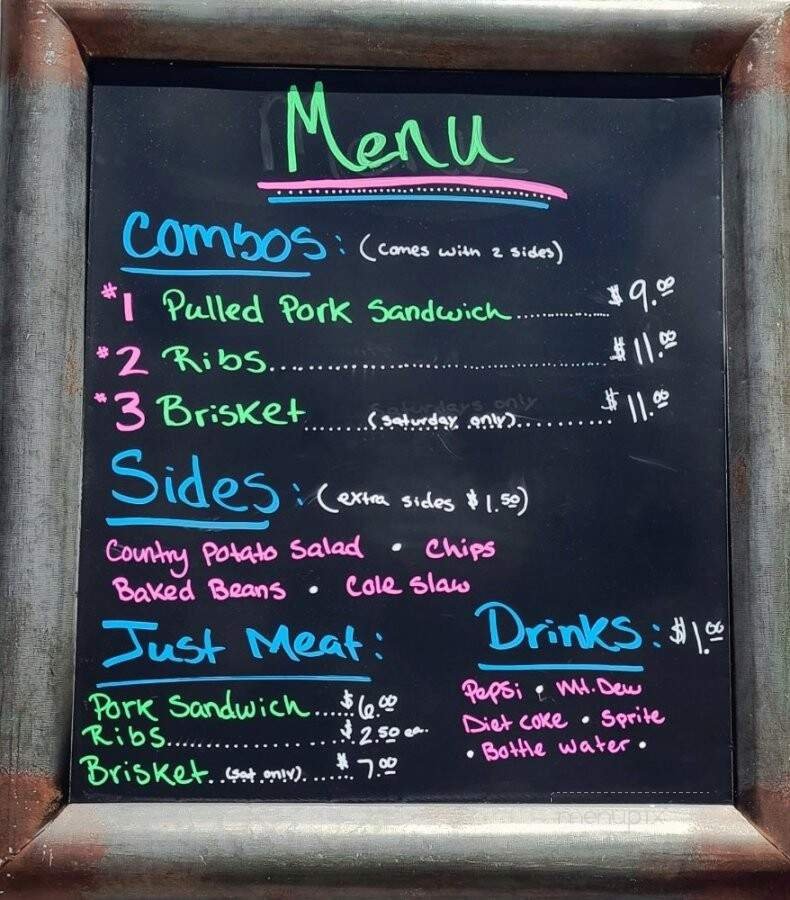 Menu
Combos: (comes with 2 sides)
#1 Pulled Pork Sandwich............... $9.00
#2 Ribs.................................... $11.00
#3 Brisket.......(saturday only).......... $11.00
Sides: (extra sides $1.50)
Country Potato Salad • Chips
Baked Beans • Cole Slaw
Just Meat:
Pork Sandwich.....$6.00
Ribs.................$2.50 ea.
Brisket..(sat only)......$7.00
Drinks: $1.00
Pepsi • Mt. Dew
Diet Coke • Sprite
• Bottle Water •
menupix